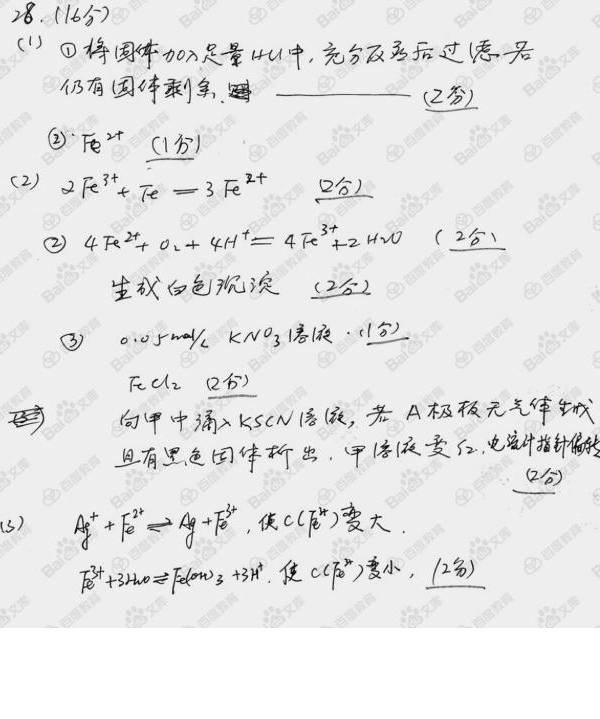 28.(16分)
(1) ①将固体加入足量HCl中,充分反应后过滤.若
仍有固体剩余. (2分)
②·Fe²⁺ (1分)
(2) 2Fe³⁺+Fe=3Fe²⁺ (2分)
② 4Fe²⁺+O₂+4H⁺=4Fe³⁺+2H₂O (2分)
生成白色沉淀 (2分)
③ 0.05mol/L KNO₃溶液·(1分)
FeCl₂ (2分)
向甲中滴入KSCN溶液,若A极板无气体生成
且有黑色固体析出.甲溶液变红.电流计指针偏转
(2分)
(3) Ag⁺+Fe²⁺⇌Ag+Fe³⁺,使C(Fe³⁺)变大.
Fe³⁺+3H₂O⇌Fe(OH)₃+3H⁺.使C(Fe³⁺)变小,(2分)
Baidu文库
百度教育